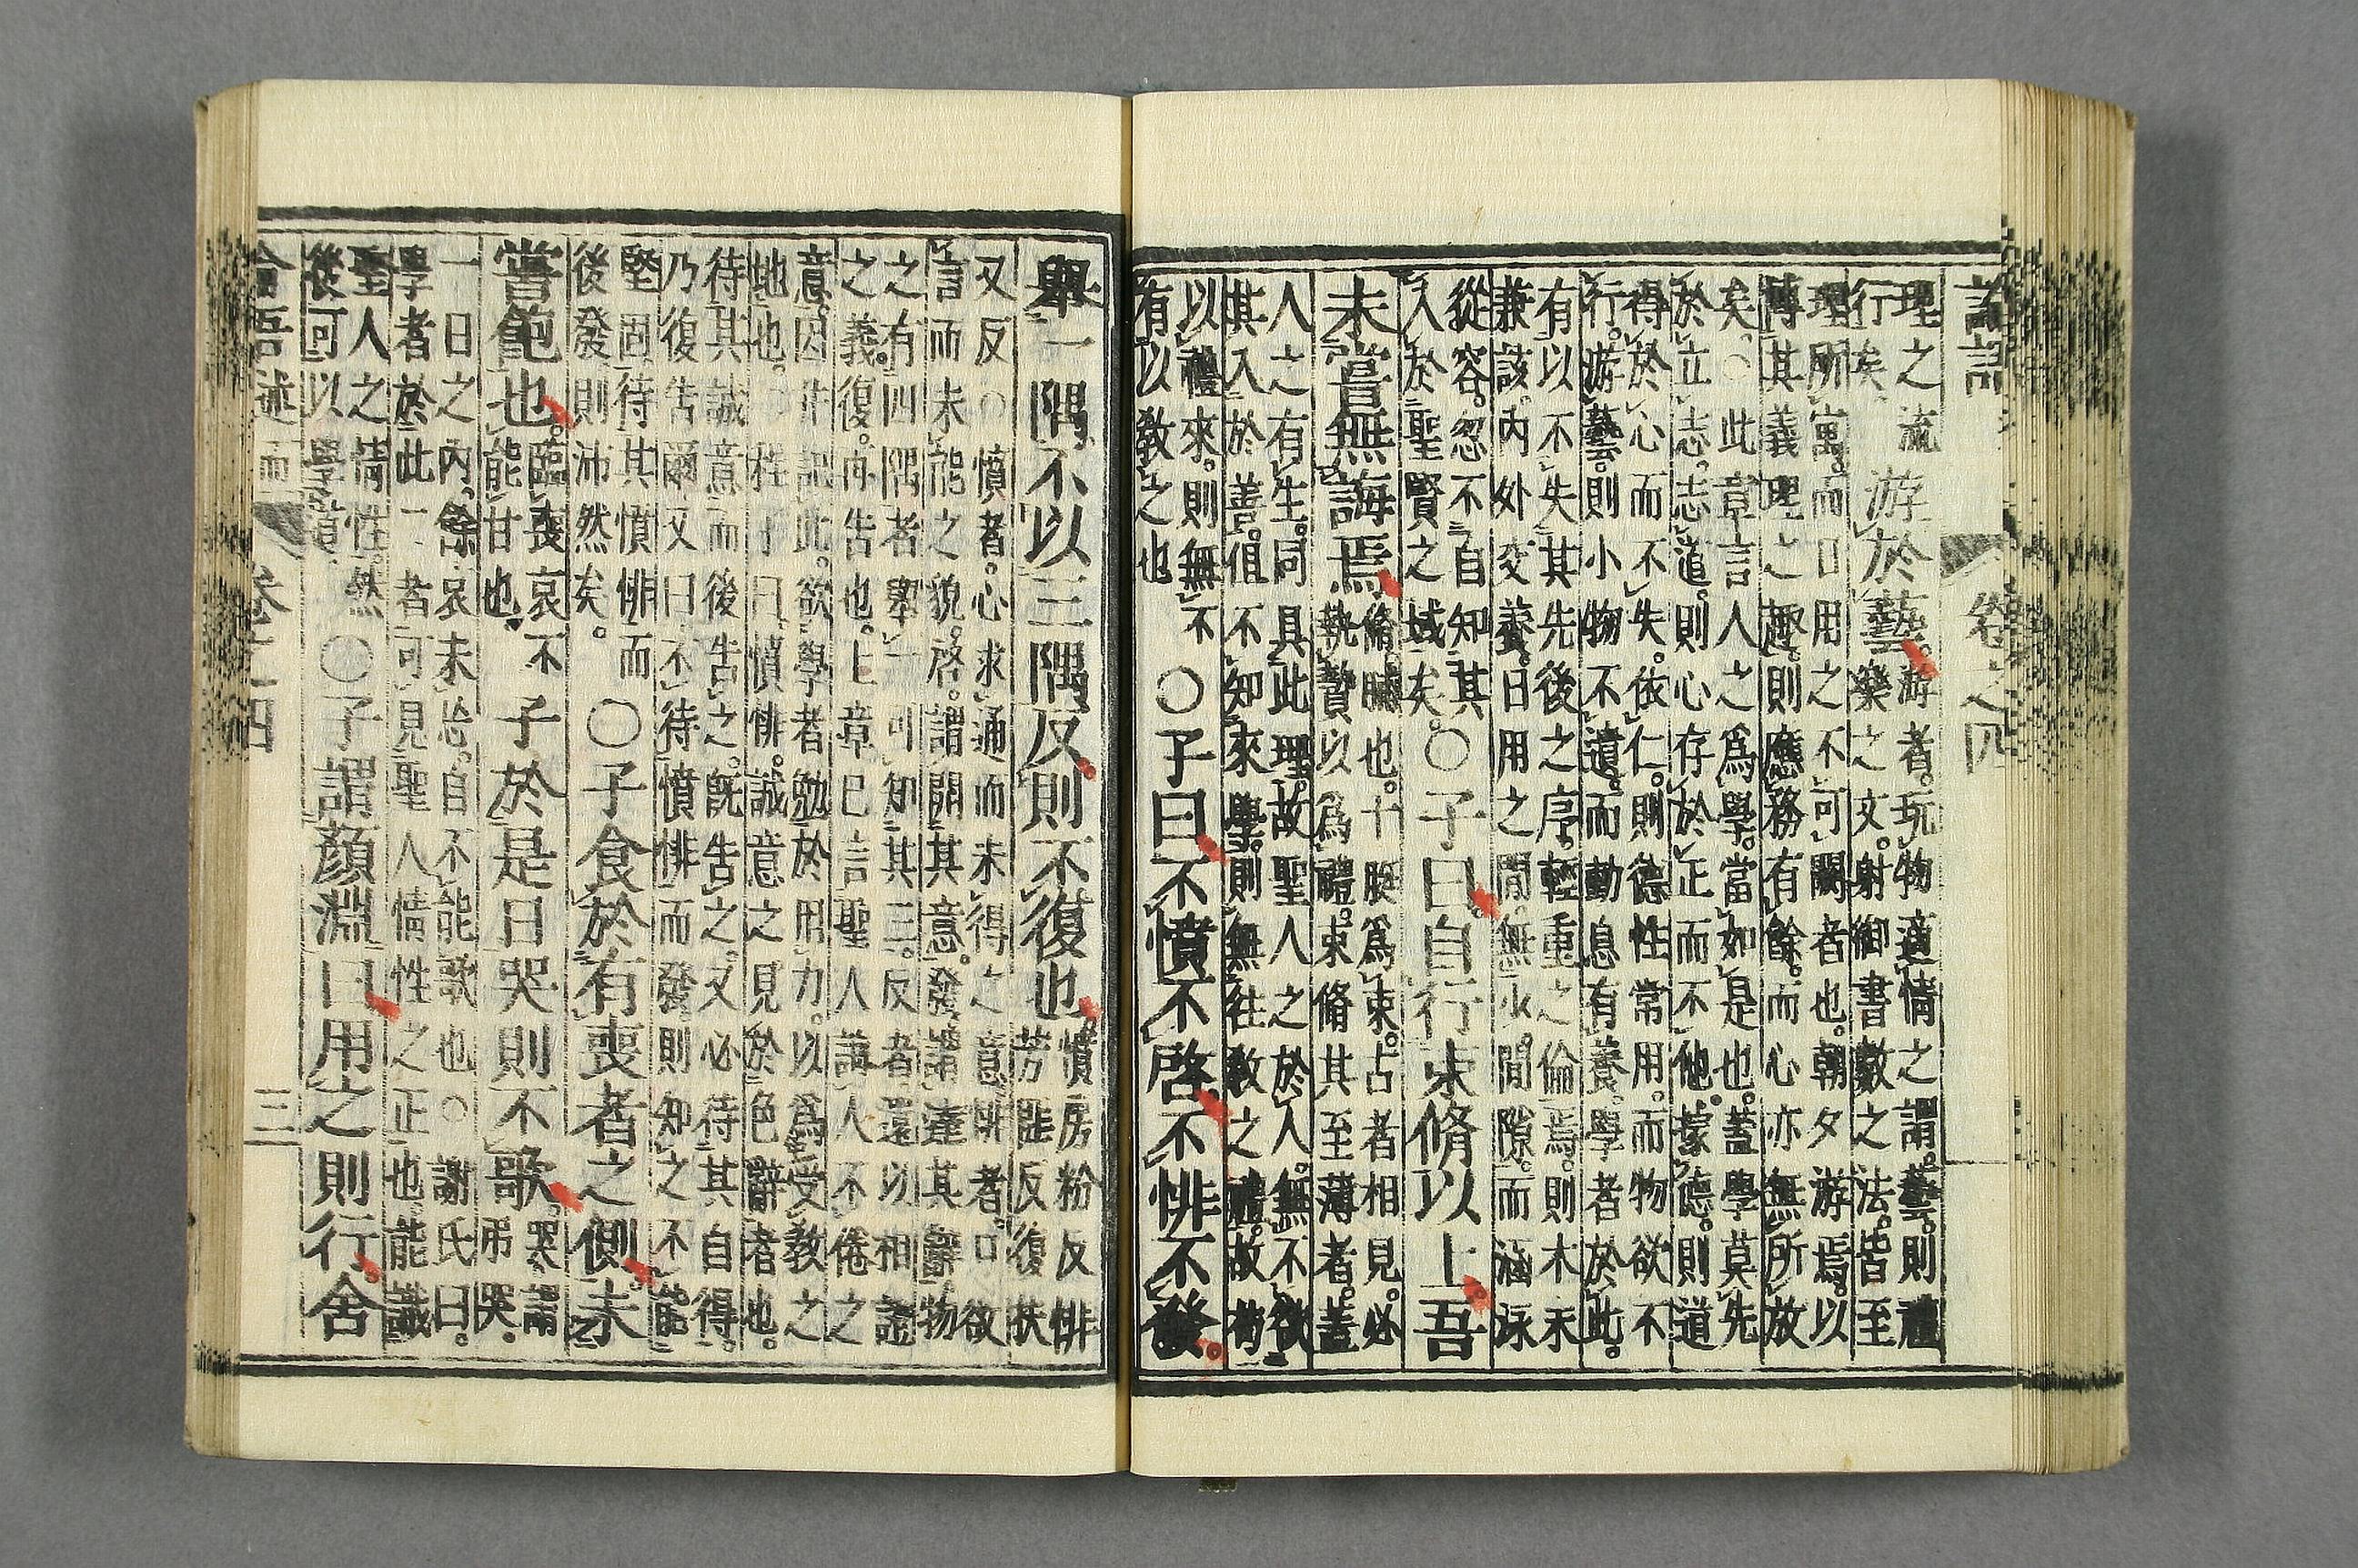 論語 卷之四
理之流
行矣
游於藝。
游者。玩物適情之謂。藝。則禮
樂之文。射御書數之法。皆至
理所寓。而日用之不可闕者也。朝夕游焉。以
博其義理之趣。則應務有餘。而心亦無所放
矣。○此章言人之爲學。當如是也。蓋學莫先
於立志。志道。則心存於正而不他。據德。則道
得於心而不失。依仁。則德性常用。而物欲不
行。游藝。則小物不遺。而動息有養。學者於此。
有以不失其先後之序。輕重之倫焉。則本末
兼該。內外交養。日用之間。無少間隙。而涵泳
從容。忽不自知其
入於聖賢之域矣。
○子曰。自行束脩以上。吾
未嘗無誨焉
脩。脯也。十脡爲束。古者相見。必
執贄以爲禮。束脩其至薄者。蓋
人之有生。同具此理。故聖人之於人。無不欲
其入於善。但不知來學。則無往敎之禮。故苟
以禮來。則無不
有以敎之也
○子曰。不憤不啓。不悱不發。
舉一隅不以三隅反。則不復也。
憤房粉反悱
芳匪反復扶
又反○憤者。心求通而未得之意。悱者。口欲
言而未能之貌。啓。謂開其意。發。謂達其辭。物
之有四隅者。舉一可知其三。反者。還以相證
之義。復。再告也。上章已言聖人誨人不倦之
意。因幷記此。欲學者勉於用力。以爲受敎之
地也。○程子曰。憤悱。誠意之見於色辭者也。
待其誠意而後告之。旣告之。又必待其自得。
乃復告爾又曰。不待憤悱而發則知之不能
堅固待其憤悱而
後發則沛然矣。
○子食於有喪者之側。未
嘗飽也。
臨喪哀不
能甘也。
子於是日哭則不歌。
哭。謂
弔哭。
一日之內。餘哀未忘。自不能歌也。○謝氏曰。
學者於此二者。可見聖人情性之正也。能識
聖人之情性。然
後可以學道。
○子謂顏淵曰。用之則行。舍
論吾述而 卷之四 三